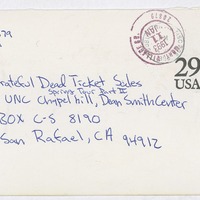 29
rateful Dead Ticket Sales
Spring Tour Part II
UNC Chapel hill, Dean Smith Center
BOX C-S 8190
San Rafael, CA 94912
29
USA